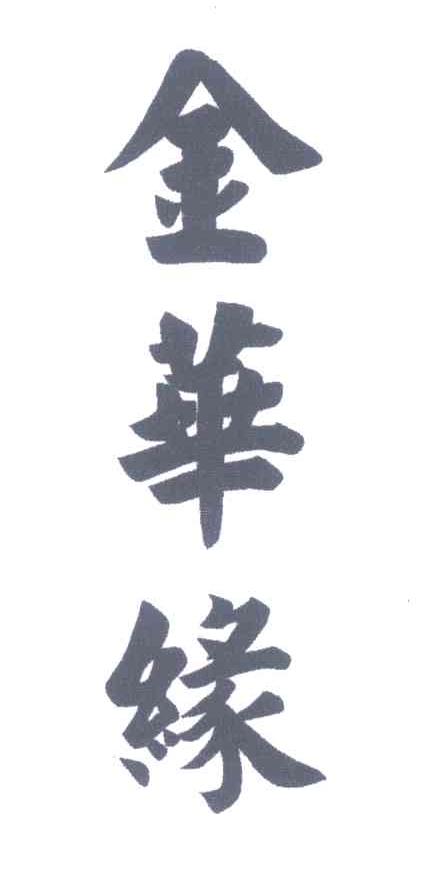 金華緣